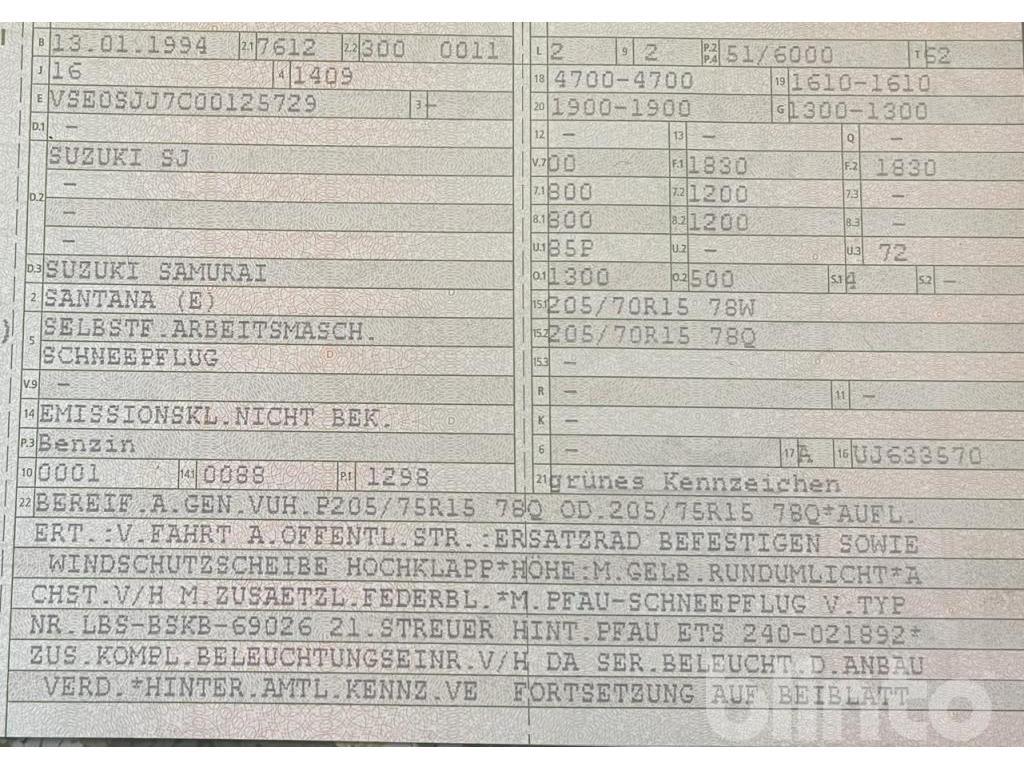 B 13.01.1994 2.1 7612 2.2 300 0011
J 16 4 1409
E VSE0SJJ7C00125729 3 -
D.1 -
SUZUKI SJ
-
D.2 -
-
D.3 SUZUKI SAMURAI
2 SANTANA (E)
5 SELBSTF.ARBEITSMASCH.
SCHNEEPFLUG
V.9 -
14 EMISSIONSKL.NICHT BEK.
P.3 Benzin
10 0001 14.1 0088 P.1 1298
L 2 9 2 P.2 P.4 51/6000 T 52
18 4700-4700 19 1610-1610
20 1900-1900 G 1300-1300
12 - 13 - Q -
V.7 00 F.1 1830 F.2 1830
7.1 800 7.2 1200 7.3 -
8.1 800 8.2 1200 8.3 -
U.1 85P U.2 - U.3 72
O.1 1300 O.2 500 S.1 4 S.2 -
15.1 205/70R15 78W
15.2 205/70R15 78Q
15.3 -
R - 11 -
K -
6 - 17 A 16 UJ633570
21 grünes Kennzeichen
22 BEREIF.A.GEN.VUH.P205/75R15 78Q OD.205/75R15 78Q*AUFL.
ERT.:V.FAHRT A.OFFENTL.STR.:ERSATZRAD BEFESTIGEN SOWIE
WINDSCHUTZSCHEIBE HOCHKLAPP*HÖHE:M.GELB.RUNDUMLICHT*A
CHST.V/H M.ZUSAETZL.FEDERBL.*M.PFAU-SCHNEEPFLUG V.TYP
NR.LBS-BSKB-69026 21.STREUER HINT.PFAU ETS 240-021892*
ZUS.KOMPL.BELEUCHTUNGSEINR.V/H DA SER.BELEUCHT.D.ANBAU
VERD.*HINTER.AMTL.KENNZ.VE FORTSETZUNG AUF BEIBLATT
blinto